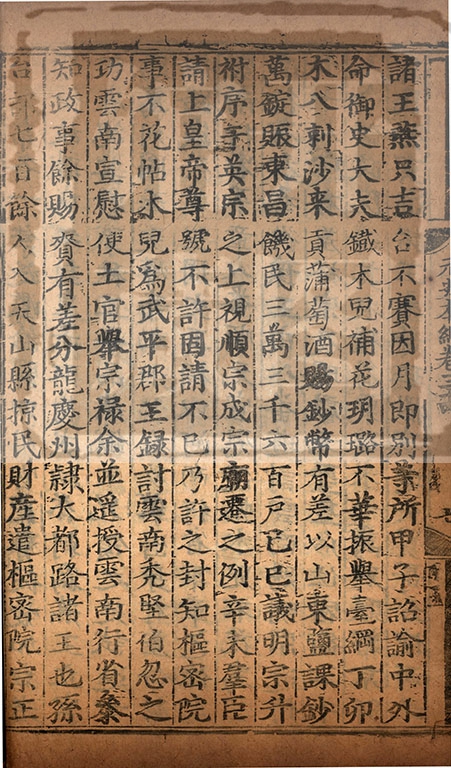 諸王燕只吉台不賽因月即別業所甲子詔諭中外
命御史大夫鐵木兒補花玥璐不華振舉臺綱丁卯
木八剌沙來貢蒲萄酒賜鈔幣有差以山東鹽課鈔
萬錠賑東昌饑民三萬三千六百戶己巳議明宗升
祔序于英宗之上視順宗成宗廟遷之例辛未羣臣
請上皇帝尊號不許固請不已乃許之封知樞密院
事不花帖木兒爲武平郡王録討雲南禿堅伯忽之
功雲南宣慰使土官舉宗祿余並遥授雲南行省叅
知政事餘賜賚有差分龍慶州隷大都路諸王也孫
台部七百餘人入天山縣掠民財產遣樞密院宗正
元史本紀卷三